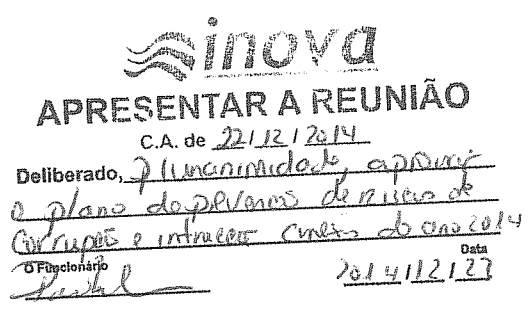 inova
APRESENTAR A REUNIÃO
C.A. de 22/12/2014
Deliberado, p/unanimidade, aprovar
o plano de de riscos de
Corrupção e infracções conexas do ano 2014
O Funcionário Data
2014/12/23